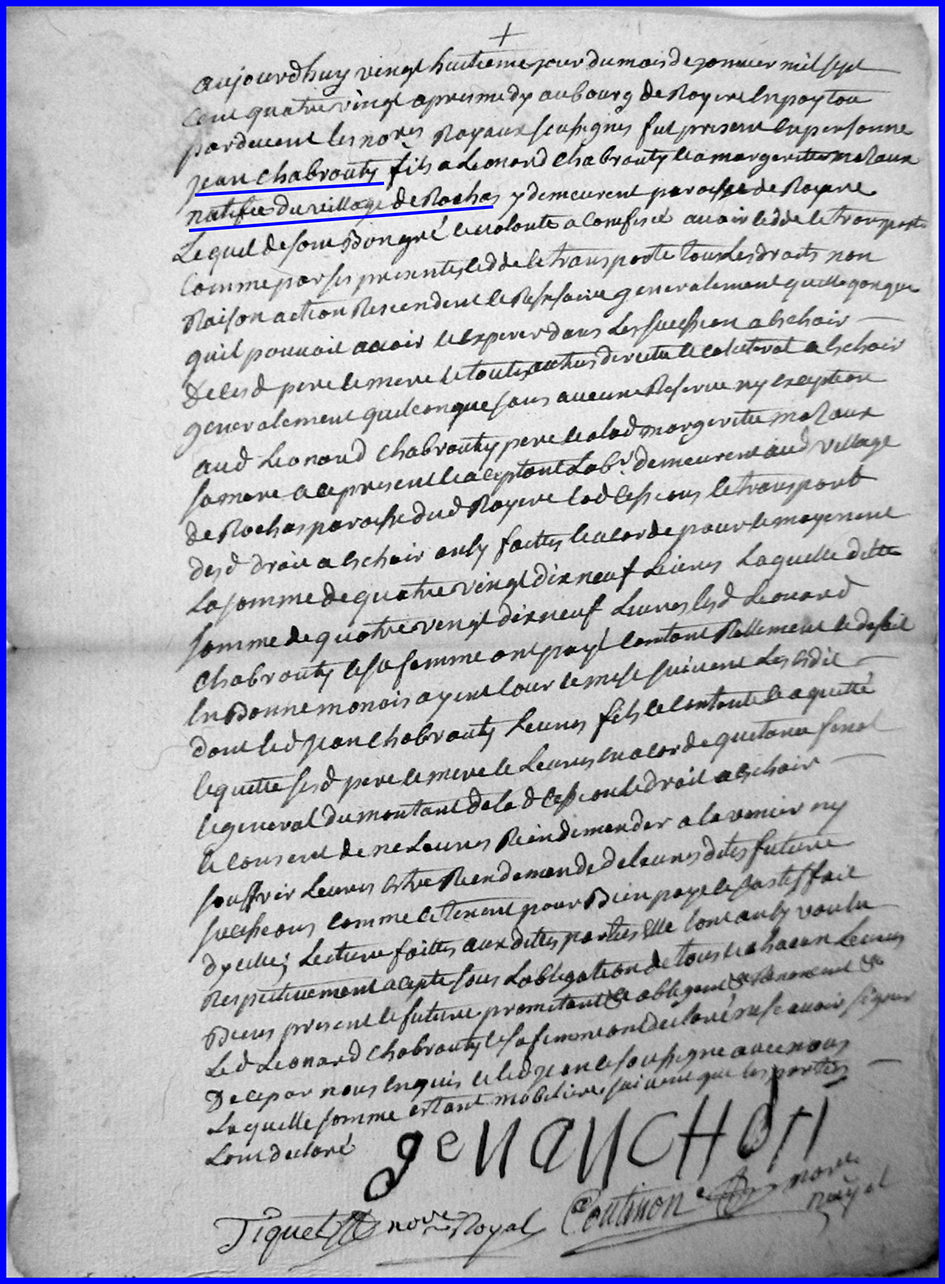 aujourdhuy vingt huitieme jour du mois de janvier mil sept
cent quatre vingt apres medy au bourg de Royere en poytou
par devent les nores Royaux soussignes fut present en personne
jean chabrouty fils a Leonard chabrouty et a margeritte mazaux
natifee du village de Rochas y demeurent paroisse de Royere
Lequel de son Bon gré et volonte a confesé avoir cedde et transporte
Comme par ses presentes cedde et transporte tous les droits non
Raison action Rescendent et Ressoire generalement quelgonque
quil pouvoit avoir et esperer dans Les suession a eschoir
de cesd pere et mere et touttes autres directe et colateral a eschoir
generalement quelconque sans aucune Reserve ny exception
aud Leonard chabrouty pere et alad margeritte mazaux
sa mere a ce present et aceptant Labr demeurent aud village
de Rochas paroisse dud Royere lad cession et transport
desd droit a eschoir ensy faittes et acorde pour et moyenent
La somme de quatre vingt dix neuf Livres Laquelle ditte
somme de quatre vingt dix neuf Livres lesd Leonard
chabrouty et sa femme ont payé contant Reellement
en Bonne monois ayent cour et mise suivent Les edit
dont led jean chabrouty Leures fils et contente et a quetté
et quette sesd pere et mere et Leures en acorde quetance final
et general du montant de la d cession et droit a eschoir
et consent de ne Leures Rien demender a la venier ny
souffrir Leures estre Rien demende de Leures dittes future
suession comme ce tenent pour Bien paye et sastisffait
dyelle; Lecture faittes aux dittes parties elle lont ensy voulu
Respetivement acepte sous Lobligation de tous et chacun Leures
Biens present et future prometant & obligent & Renoncent &
Led Leonard chabrouty et sa femme ont declaré ne scavoir signer
De ce par nous enquis et led jean et soussigne avec nous
Laquelle somme estant mobiliere suivent que les parties
Lont declaré
genauchon
Tiquet nore Royal Coutinon nore Royal